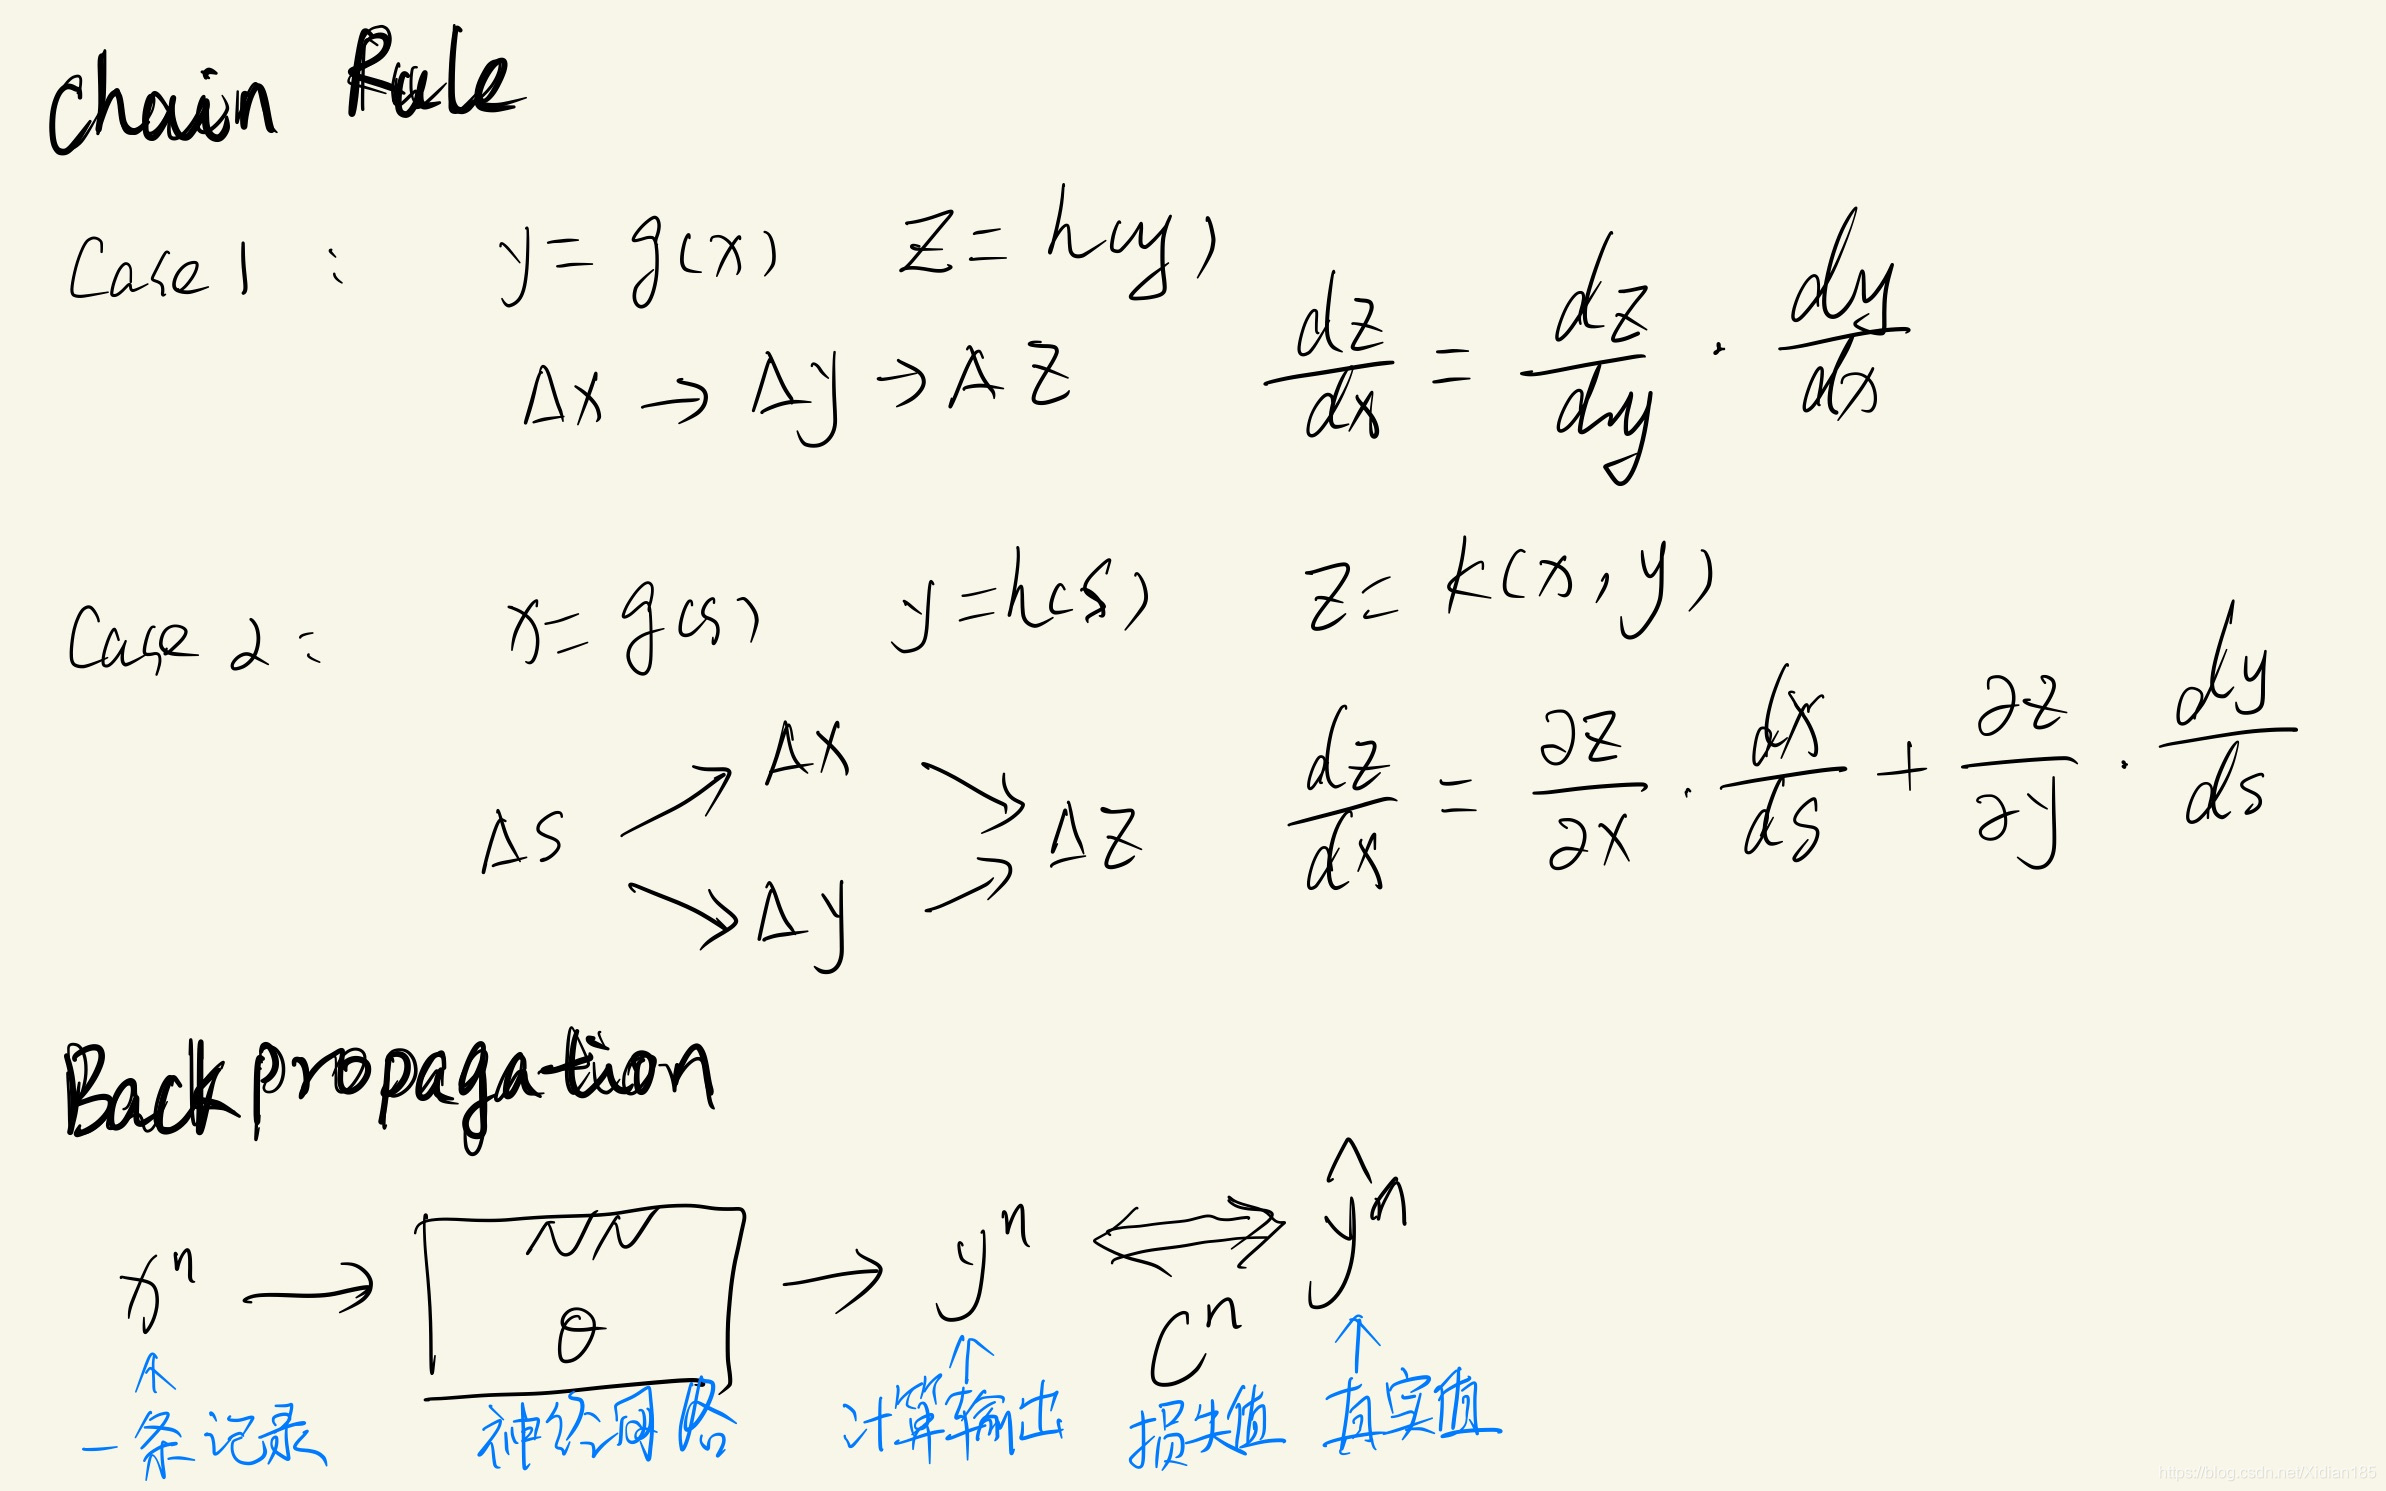 Chain Rule
Case 1: y = g(x) z = h(y)
Δx → Δy → Δz dz/dx = dz/dy · dy/dx
Case 2: x = g(s) y = h(s) z = k(x, y)
Δs → Δx → Δz
Δs → Δy → Δz
dz/dx = ∂z/∂x · dx/ds + ∂z/∂y · dy/ds
Backpropagation
xⁿ → NN θ → yⁿ ⟺ ŷⁿ
Cⁿ
一条记录 神经网络 计算输出 损失值 真实值
https://blog.csdn.net/Xidian185